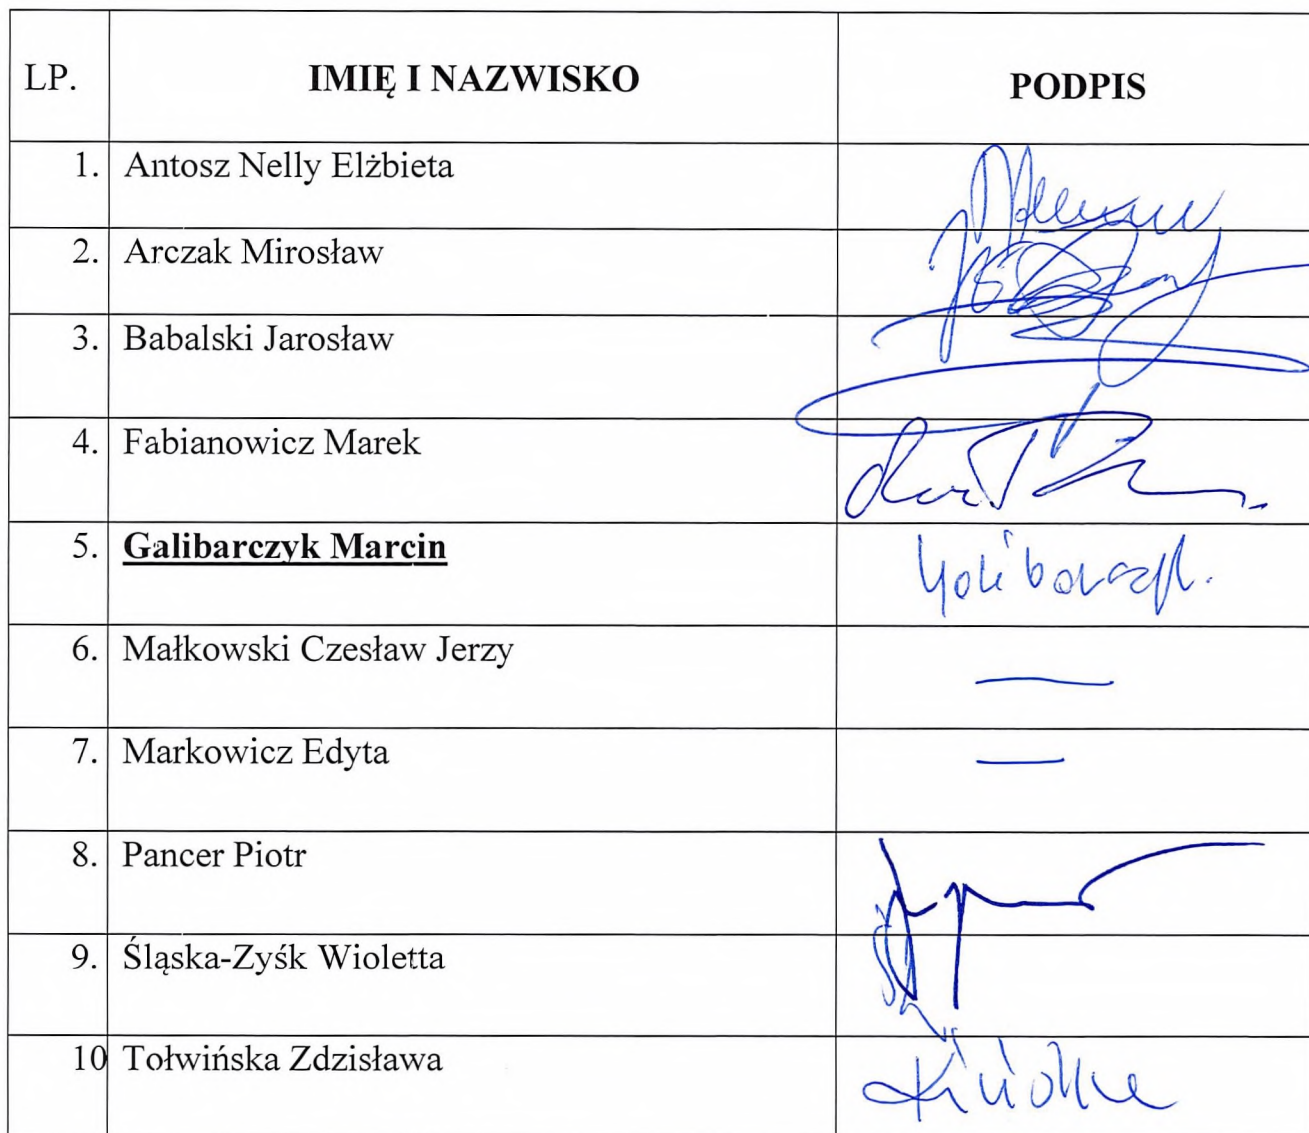 LP. IMIĘ I NAZWISKO PODPIS
1. Antosz Nelly Elżbieta
2. Arczak Mirosław
3. Babalski Jarosław
4. Fabianowicz Marek
5. Galibarczyk Marcin
6. Małkowski Czesław Jerzy —
7. Markowicz Edyta —
8. Pancer Piotr
9. Śląska-Zyśk Wioletta
10 Tołwińska Zdzisława